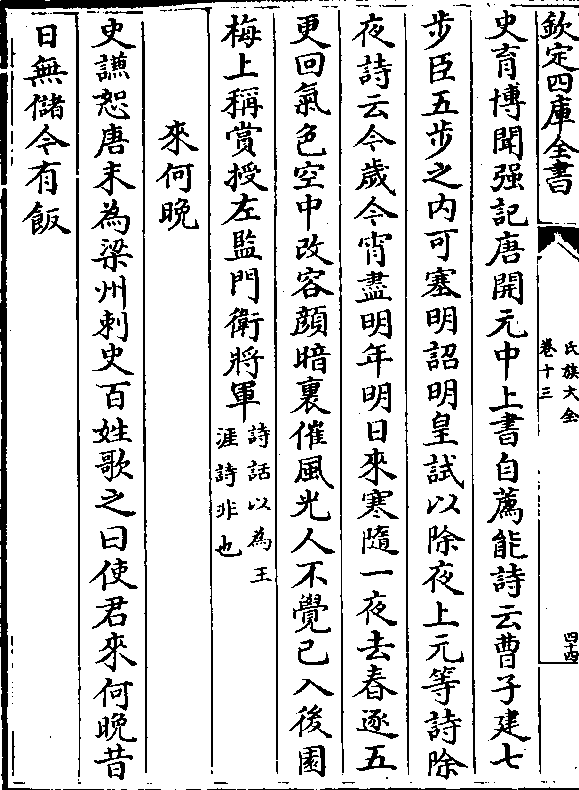 欽定四庫全書
氏族大全
卷十三
四十四
史育博聞强記唐開元中上書自薦能詩云曹子建七
步臣五步之内可塞明詔明皇試以除夜上元等詩除
夜詩云今歲今宵盡明年明日來寒隨一夜去春逐五
更回氣色空中改容顔暗裏催風光人不覺已入後園
梅上稱賞授左監門衛將軍
詩話以為王
涯詩非也
來何晩
史讌恕唐末為梁州刺史百姓歌之曰使君來何晩昔
日無儲今有飯